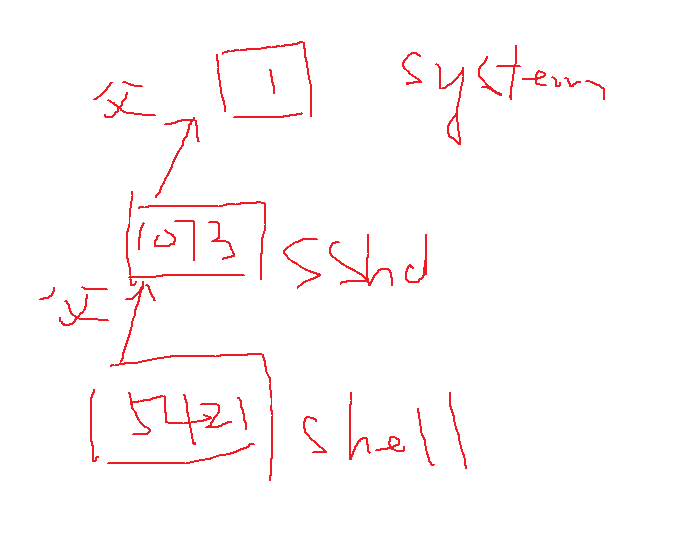 1 system
父
1073 sshd
父
5421 shell